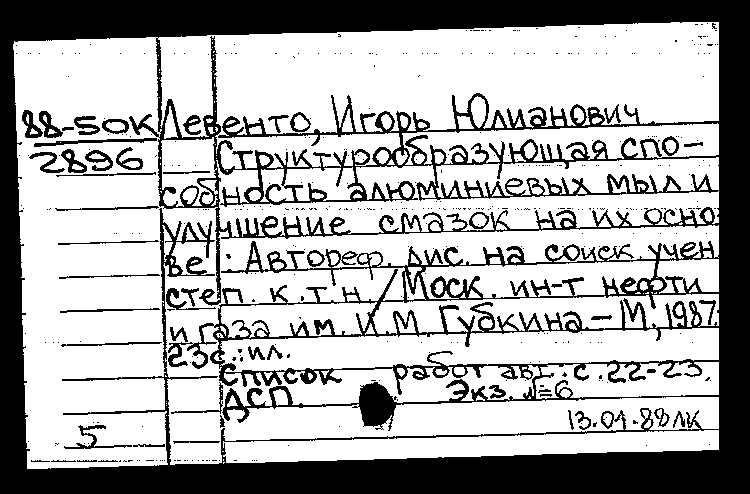 88-5ОК Левенто, Игорь Юлианович.
2896 Структурообразующая спо-
собность алюминиевых мыл и
улучшение смазок на их осно
ве : Автореф. дис. на соиск. учен
степ. к.т.н. / Моск. ин-т нефти
и газа им. И.М. Губкина – М., 1987.
23с.: ил.
Список работ авт.: с. 22-23.
ДСП. Экз. №6
5 13.01.88 ЛК